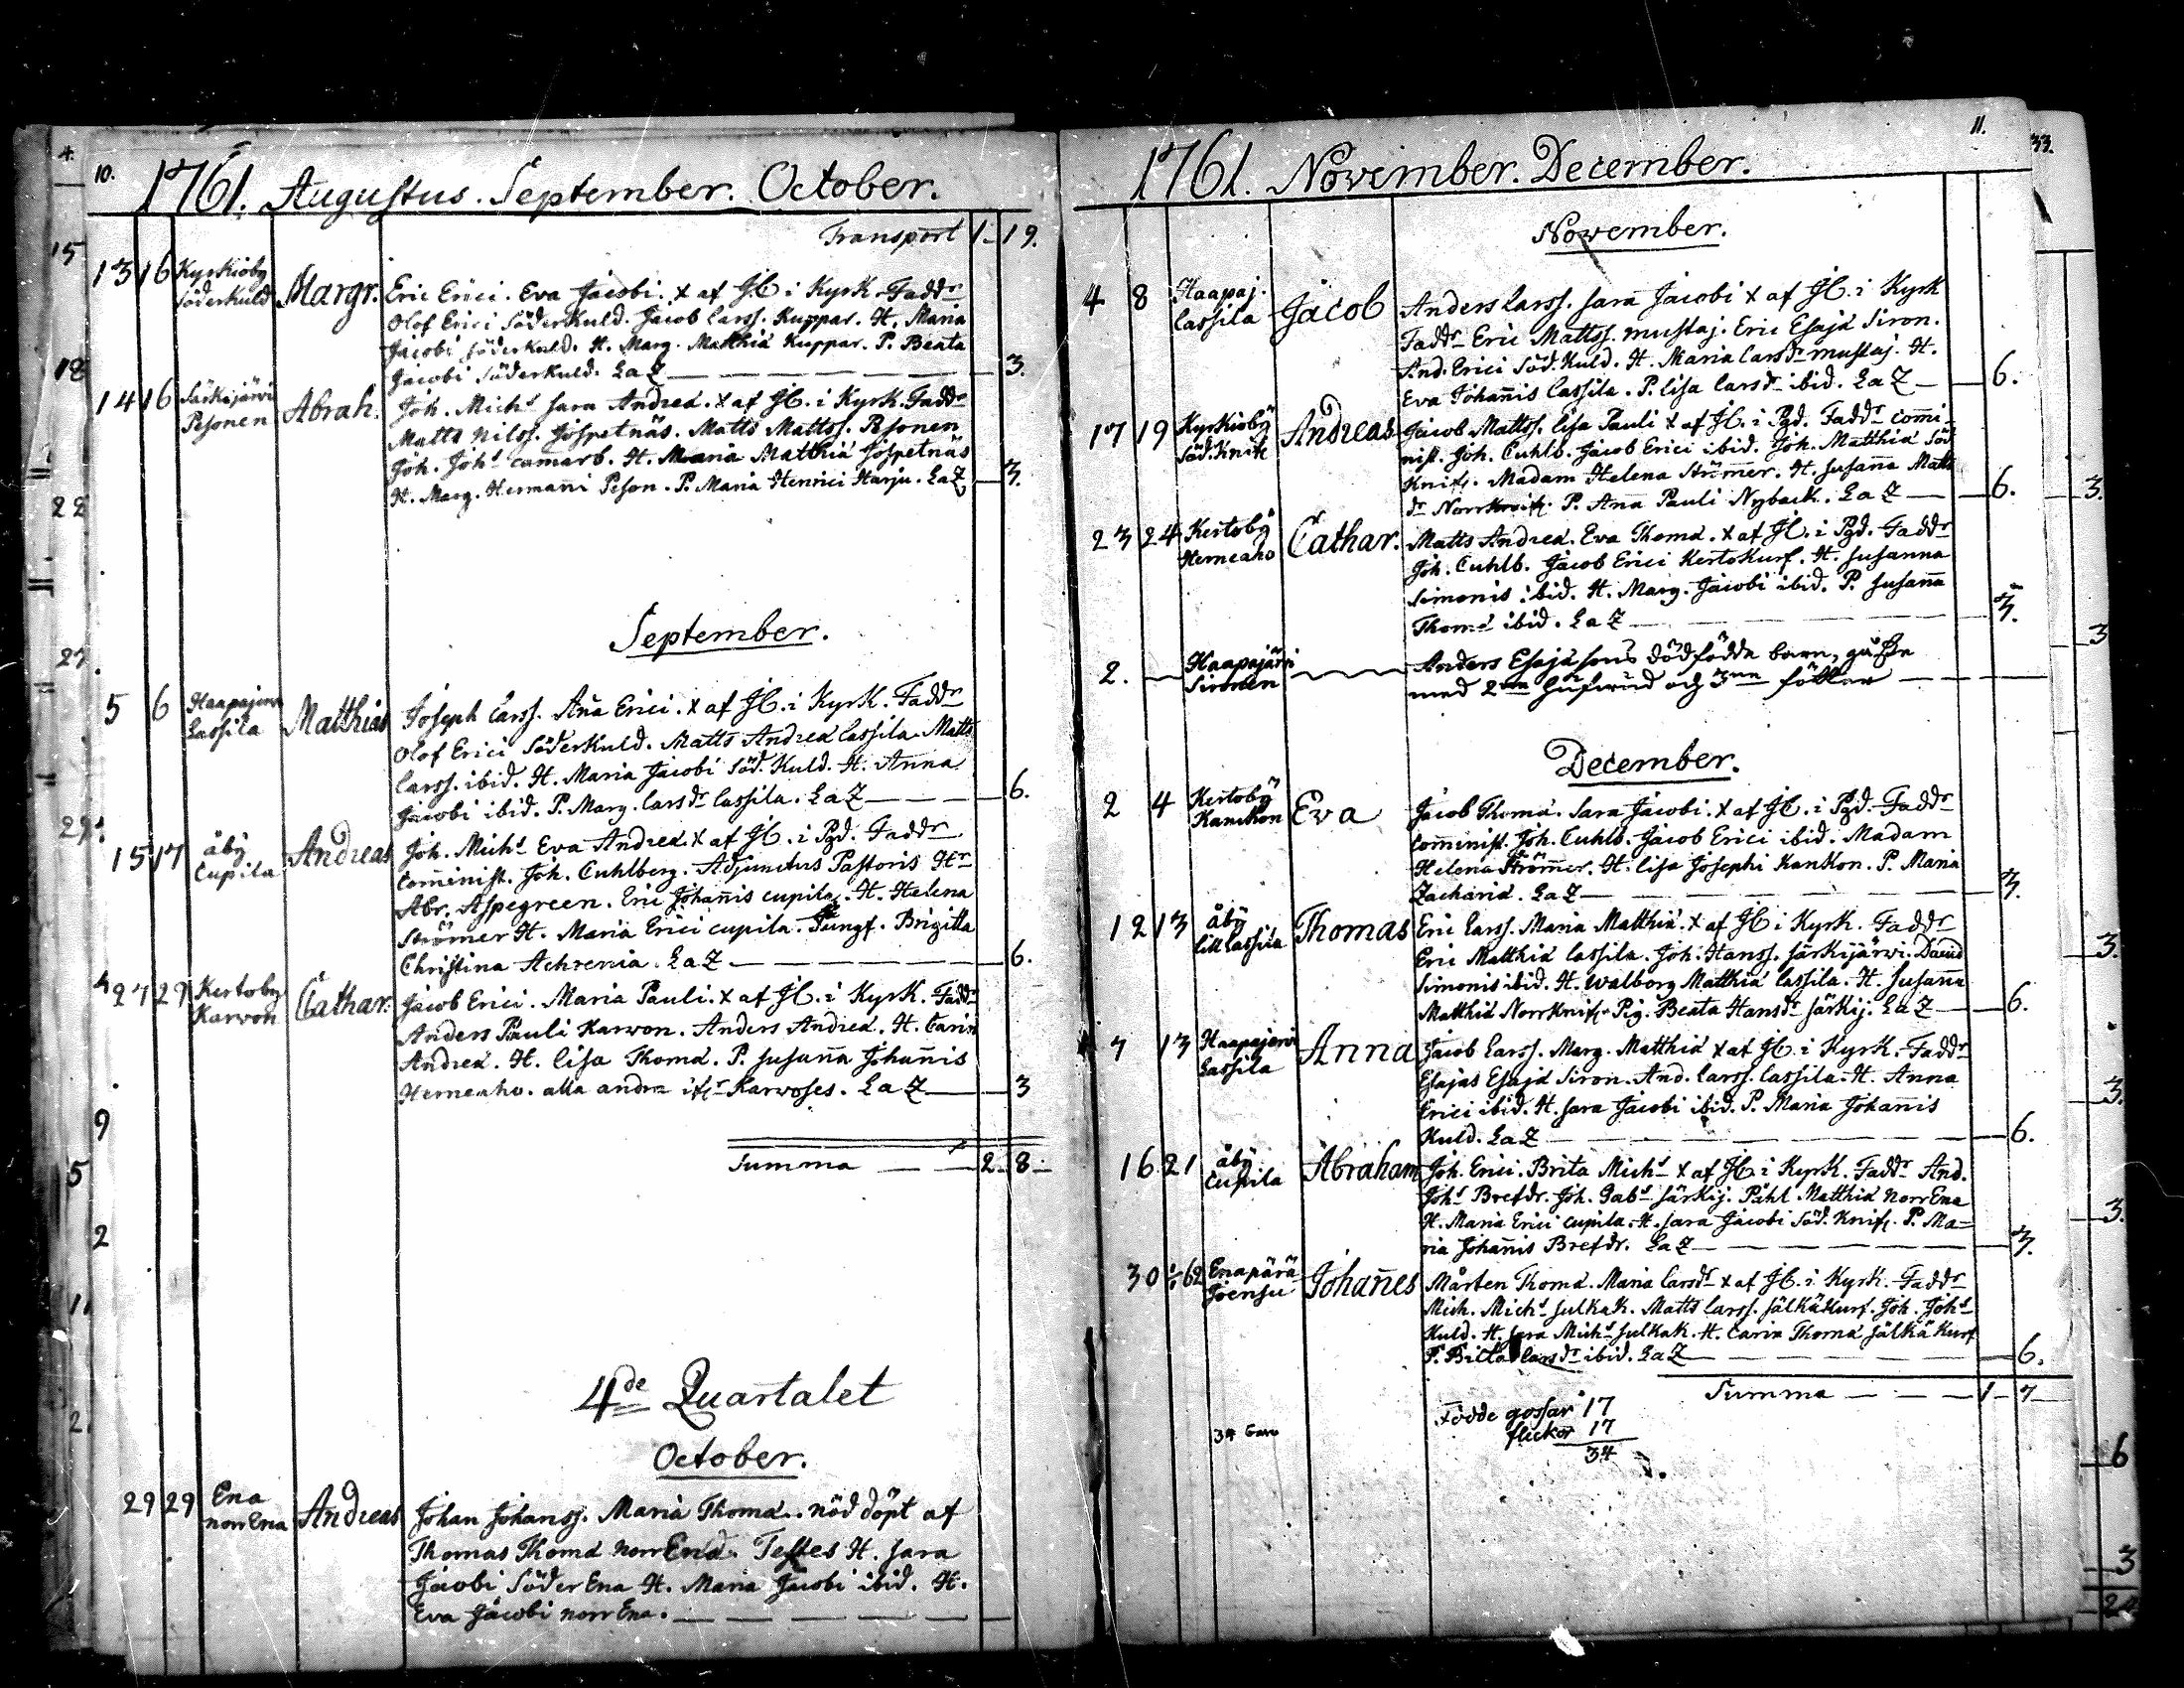 10.
1761. Augustus. September. October.
Transport 1-19.
13 16 Kyrkioby Söderkuld Margr. Eric Erici. Eva Jacobi. x af JC. i Kyrk. Faddr
Olof Erici Söderkuld. Jacob Larss. Kuppar. H. Maria
Jacobi Söderkuld. H. Marg. Matthiæ Kuppar. P. Beata
Jacobi Söderkuld. LaZ 3.
14 16 Särkijärvi Pesonen Abrah. Joh. Michs Sara Andreæ. x af JC. i Kyrk. Faddr
Matts Nilss. Jospetnäs. Matts Mattss. Pesonen
Joh. Johs camarb. H. Maria Matthiæ Jospetnäs
H. Marg. Hermanni Peson. P. Maria Henrici Harju. LaZ 3.
September.
5 6 Haapajerwi Lassila Matthias Joseph Larss. Aña Erici. x af JC. i Kyrk. Faddr
Olof Erici Söderkuld. Matts Andreæ Lassila. Matts
Larss. ibid. H. Maria Jacobi Söd. Kuld. H. Anna
Jacobi ibid. P. Marg. Larsdr Lassila. LaZ 6.
15 17 åby Cupila Andreas Joh. Michs Eva Andreæ x af JC. i Pgd. Faddr
Com̄inist. Joh. Cuhlberg. Adjunctus Pastoris Hr
Abr. Aspegreen. Eric Johan̄is cupila. H. Helena
Strömer H. Maria Erici cupila. Jungf. Brigitta
Christina Achrenia. LaZ 6.
27 29 Kertoby Karwon Cathar. Jacob Erici. Maria Pauli. x af JC. i Kyrk. Faddr
Anders Pauli Karwon. Anders Andreæ. H. Carin
Andreæ. H. Lisa Thomæ. P. Susan̄a Johan̄is
Herneaho. alla andra ifr Karwoses. LaZ 3
Summa 2-8-
4de Quartalet
October.
29 29 Ena norrEna Andreas Johan Johanss. Maria Thomæ. nöd döpt af
Thomas Thomæ NorrEna. Testes H. Sara
Jacobi SöderEna H. Maria Jacobi ibid. H.
Eva Jacobi norrEna.
11.
1761. November. December.
November.
4 8 Haapaj. Lassila Jacob Anders Larss. Sara Jacobi x af JC. i Kyrk
Faddr Eric Mattss. mustaj. Eric Esajæ Siron.
And. Erici Söd. Kuld. H. Maria Larsdr mustaj. H.
Eva Johan̄is Lassila. P. Lisa Larsdr ibid. LaZ 6.
17 19 Kyrkioby Söd. Knift Andreas Jacob Mattss. Lisa Pauli x af JC. i Pgd. Faddr com̄i-
nist. Joh. Cuhlb. Jacob Erici ibid. Joh. Matthiæ Söd
Knift. Madam Helena Strömer. H. Susan̄a Matts
dr Norrknift. P. An̄a Pauli Nyback. LaZ 6.
23 24 Kertoby Herneaho Cathar. Matts Andreæ. Eva Thomæ. x af JC. i Pgd. Faddr
Joh. Cuhlb. Jacob Erici Kertokurf. H. Susanna
Simonis ibid. H. Marg. Jacobi ibid. P. Susan̄a
Thomæ ibid. LaZ 3.
2. Haapajärvi Sironen Anders Esajæ sons dödfödda barn,
med 2ne och 3ne fötter
December.
2 4 Kertoby Kanckon Eva Jacob Thomæ. Sara Jacobi. x af JC. i Pgd. Faddr
Com̄inist. Joh. Cuhlb. Jacob Erici ibid. Madam
Helena Strömer. H. Lisa Josephi Kankon. P. Maria
Zachariæ. LaZ 3.
12 13 åby Lill Lassila Thomas Eric Larss. Maria Matthiæ. x af JC i Kyrk. Faddr
Eric Matthiæ Lassila. Joh. Hanss. Särkijärwi. David
Simonis ibid. H. Walborg Matthiæ Lassila. H. Susan̄a
Matthiæ Norrknift. Pig. Beata Hansdr Särkij. LaZ 6.
7 13 Haapajerwi Lassila Anna Jacob Larss. Marg. Matthiæ x af JC. i Kyrk. Faddr
Esajas Esajæ Siron. And. Larss. Lassila. H. Anna
Erici ibid. H. Sara Jacobi ibid. P. Maria Johan̄is
Kuld. LaZ 6.
16 21 åby Cupila Abraham Joh. Erici. Brita Michs x af JC. i Kyrk. Faddr And.
Johs Brefdr. Joh. Gabs Särkij. Påhl Matthiæ NorrEna
H. Maria Erici cupila. H. Sara Jacobi Söd. Knift. P. Ma=
ria Johan̄is Brefdr. LaZ 3.
30 62 Enapärä Joensu Johan̄es Mårten Thomæ. Maria Larsdr x af JC. i Kyrk. Faddr
Mich. Michs Julkak. Matts Larss. Jälkäkurf. Joh. Johs
Kuld. H. Sara Michs Julkak. H. Carin Thomæ Jälkäkurf
P. Brita Larsdr ibid. LaZ 6.
Summa 1-7
Födde gossar 17
flickor 17
34
34 barn